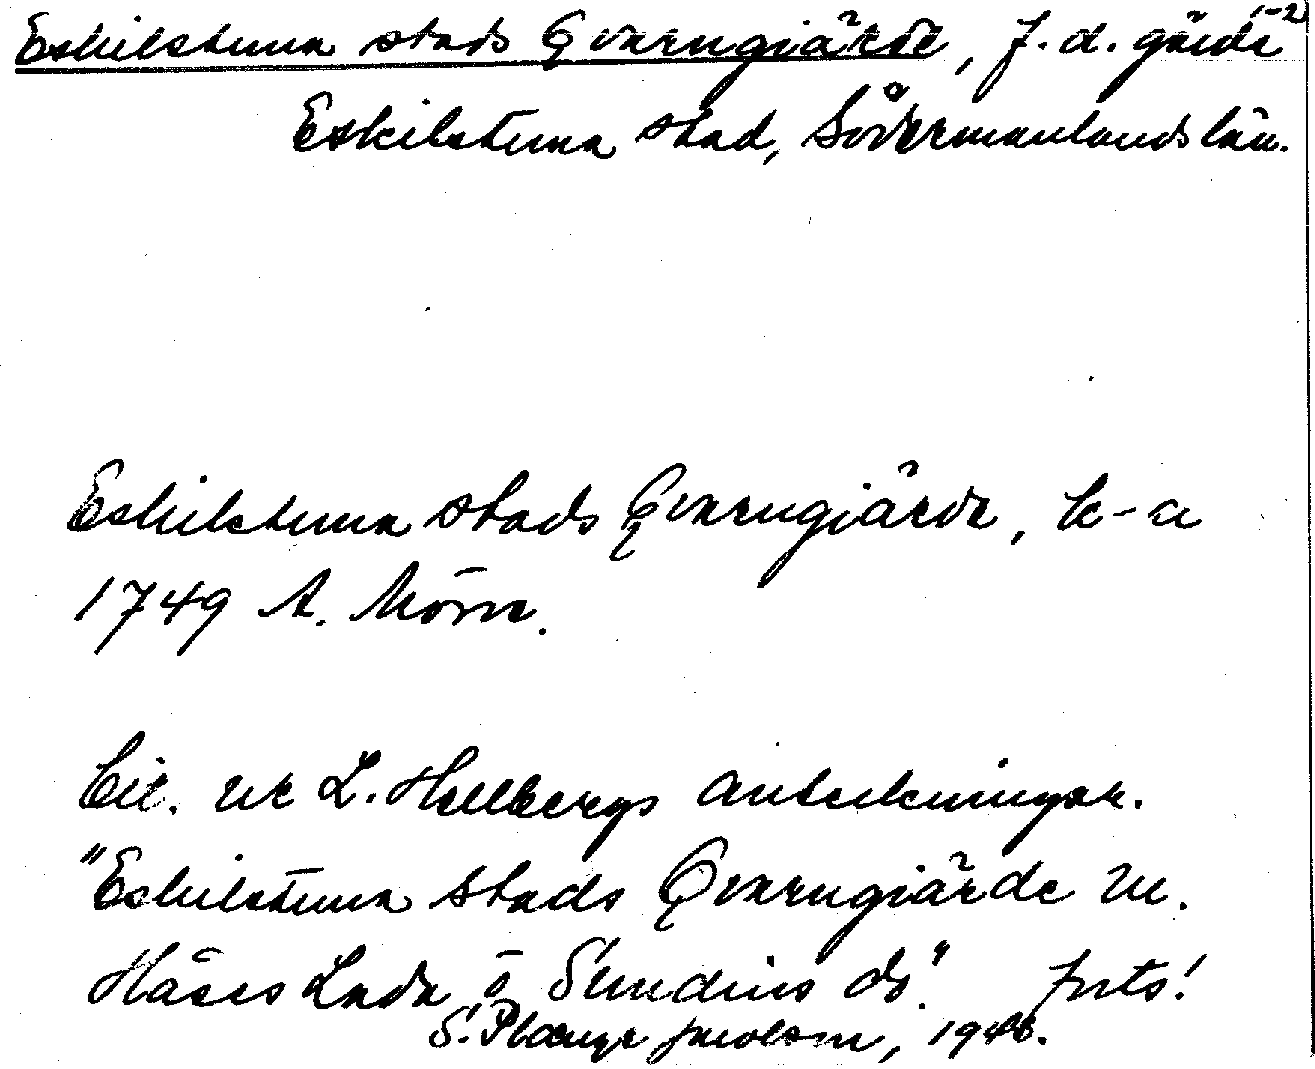 Eskilstuna stads Qvarngiärde, f. d. gärde 1-2
Eskilstuna stad, Södermanlands län.
Eskilstuna stads Qvarngiärde, k-a
1749 A. Mörn.
Cit. ur L. Hellbergs anteckningar.
"Eskilstuna stads Qvarngiärde m.
Lada ō Sundius do". forts!
S. Jacobson, 1946.